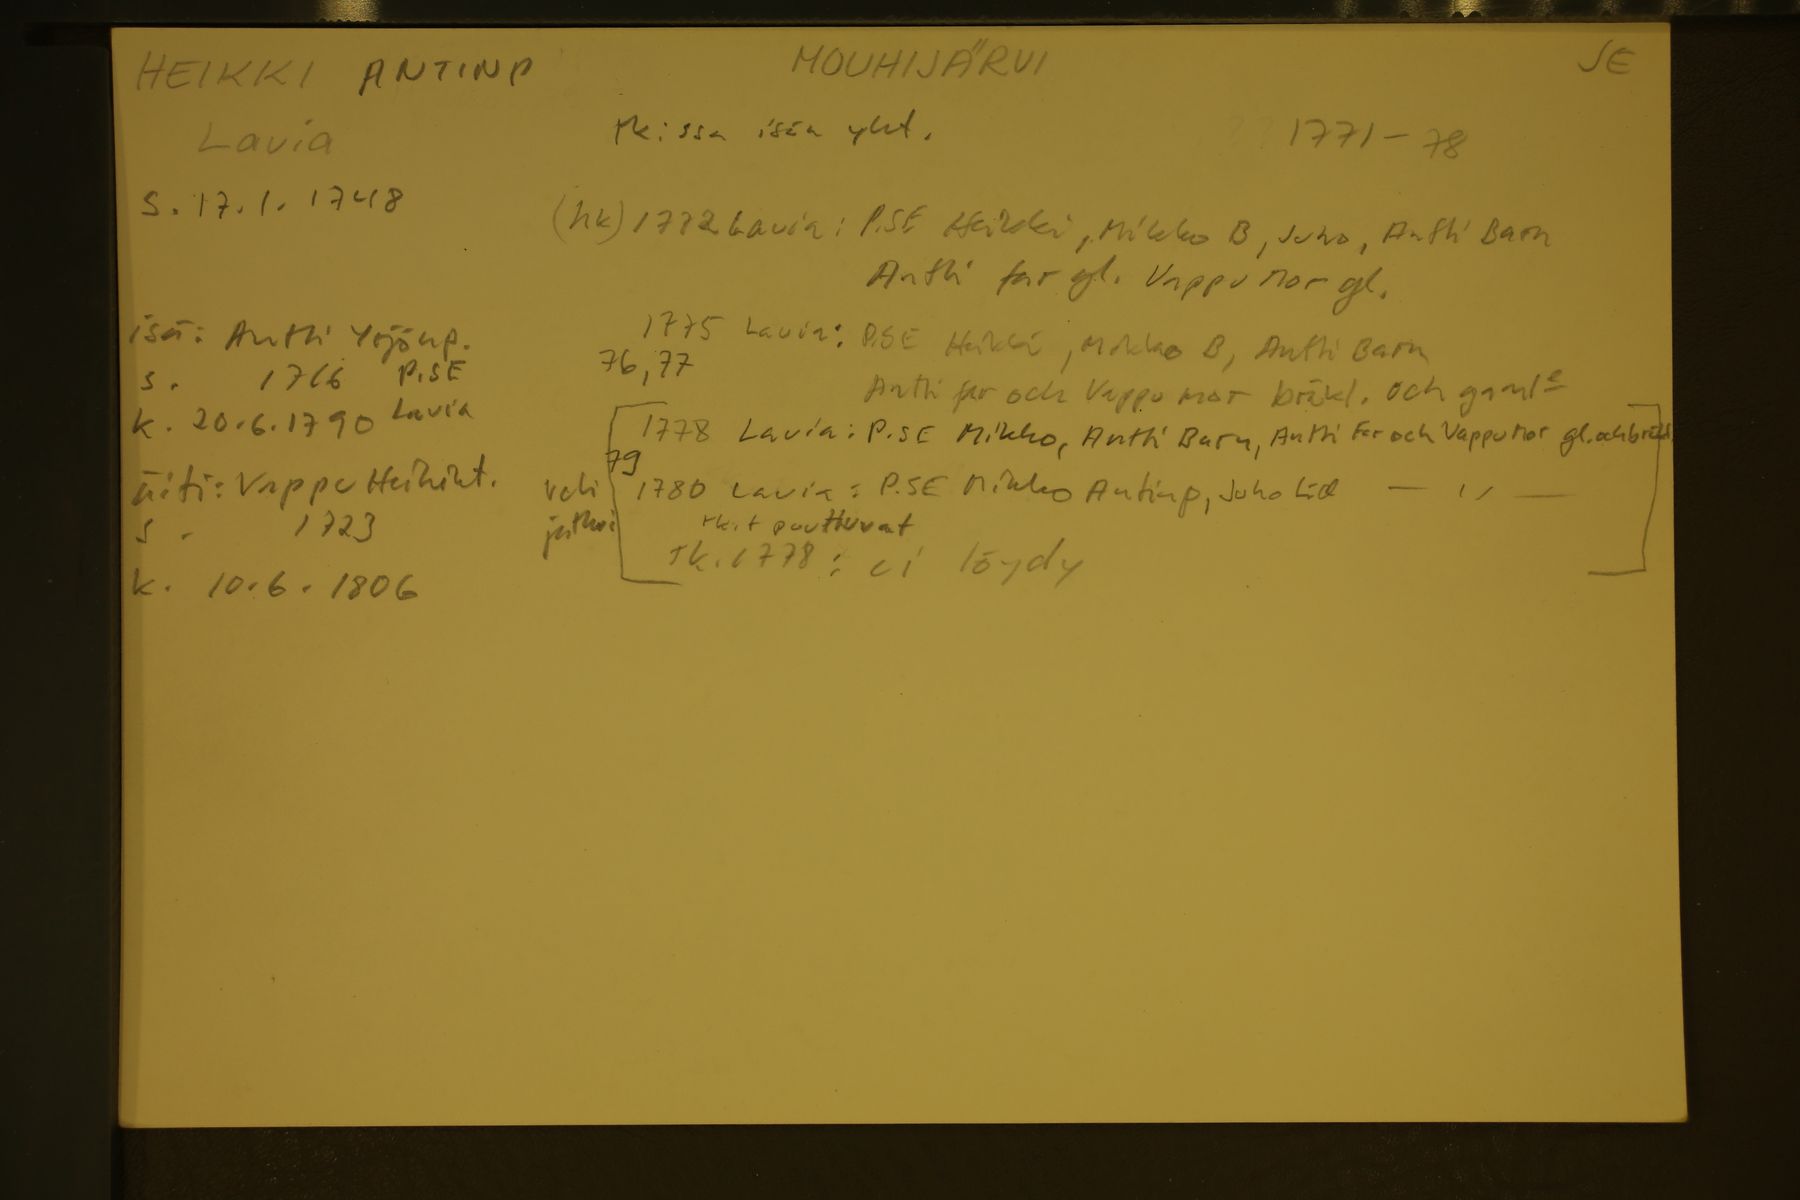 HEIKKI ANTINP
MOUHIJÄRVI
SE
Lavia
rk:ssa isän yht.
?? 1771-78
s. 17.1. 1748
(hk) 1772 Lavia: P.SE Heikki, Mikko B, Juho, Antti Barn
Antti far gl. Vappu mor gl.
isä: Antti Yrjönp.
s. 1716 P.SE
k. 20.6.1790 Lavia
äiti: Vappu Heikint.
s. 1723
k. 10.6.1806
1775 Lavia: P.SE Heikki, Mikko B, Antti Barn
76, 77
Antti far och Vappu mor bräkl. och gaml
1778 Lavia: P.SE Mikko, Antti Barn, Antti Far och Vappu Mor gl. och bräkl.
79
veli jatkoi
1780 Lavia: P.SE Mikko Antinp, Juho — ,, —
rk.t puuttuvat
rk. 1778: ei löydy